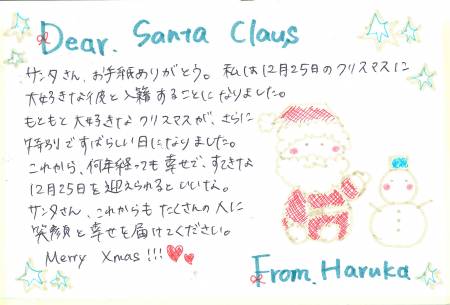 Dear. Santa Claus
サンタさん、お手紙ありがとう。私は12月25日のクリスマスに
大好きな彼と入籍することになりました。
もともと大好きなクリスマスが、さらに
特別ですばらしい日になりました。
これから、何年経っても幸せで、すてきな
12月25日を迎えられるといいな。
サンタさん、これからもたくさんの人に
笑顔と幸せを届けてください。
Merry Xmas!!!
From. Haruka